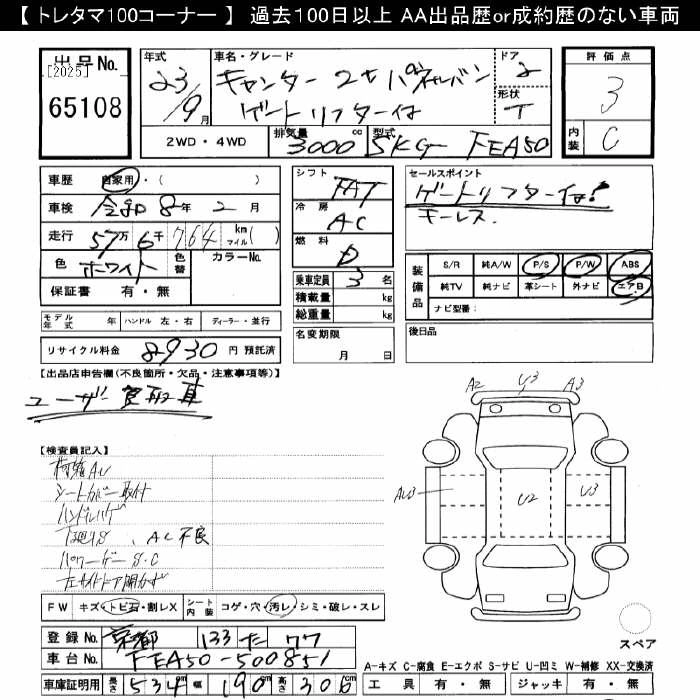 【 トレタマ100コーナー 】 過去100日以上 AA出品歴or成約歴のない車両
出品No.
[2025]
65108
年式 車名・グレード ドア 評価点
23/9月 キャンター 2t パネルバン 2 3
ゲートリフター付 形状 T
2WD・4WD 排気量 3000 cc 型式 SKG FEA50 内装 C
車歴 自家用・( )
車検 令和 8年 2月
走行 57万 6千 764 km マイル( )
色 ホワイト 色替 カラーNo.
保証書 有・無
シフト FAT
冷房 AC
燃料 D
乗車定員 3 名
積載量 kg
総重量 kg
セールスポイント
ゲートリフター付!
キーレス.
装備品 S/R 純A/W P/S P/W ABS
純TV 純ナビ 革シート 外ナビ エアB
ナビ型番:
モデル年式 年 ハンドル 左・右 ディーラー・並行
名変期限 月 日
後日品
リサイクル料金 8930 円 預託済
【出品店申告欄(不良箇所・欠品・注意事項等)】
ユーザー買取車
【検査員記入】
シートカバー取付
ハンドルハゲ
下廻りS、AC不良
パワーゲート S.C
左サイドドア開かず
A2 U3 A3
AU3 U2 U3
スペア
FW キズ・トビ石・割レX シート内装 コゲ・穴・汚レ・シミ・破レ・スレ
登録No. 京都 133 た 77
車台No. FEA50-500851
車庫証明用 長さ 534 cm 幅 190 cm 高さ 306 cm
A-キズ C-腐食 E-エクボ S-サビ U-凹ミ W-補修 XX-交換済
工具 有・無 ジャッキ 有・無